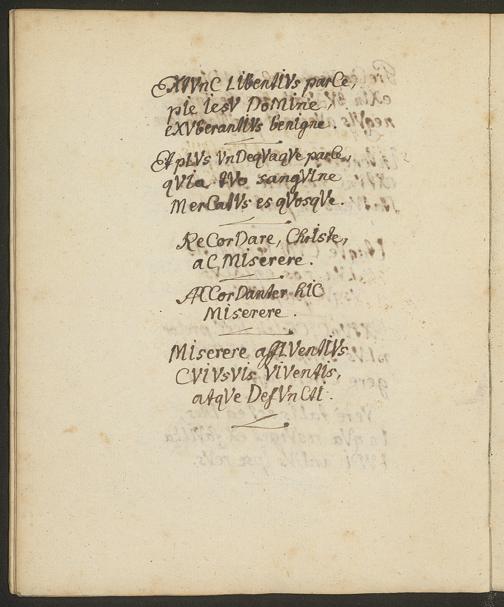 EXtVnC LIbentIVs parCe,
pIe IesV DoMIne,
eXVberantIVs benIgne.
et pLVs VnDeqVaqVe parCe,
qVIa tVo sangVIne
MerCatVs es qVosqVe.
ReCorDare, ChrIste,
aC MIserere.
ACCorDanter hIC
MIserere.
MIserere affLVentIVs
CVIVsVIs VIVentIs,
atqVe DefVnCtI.